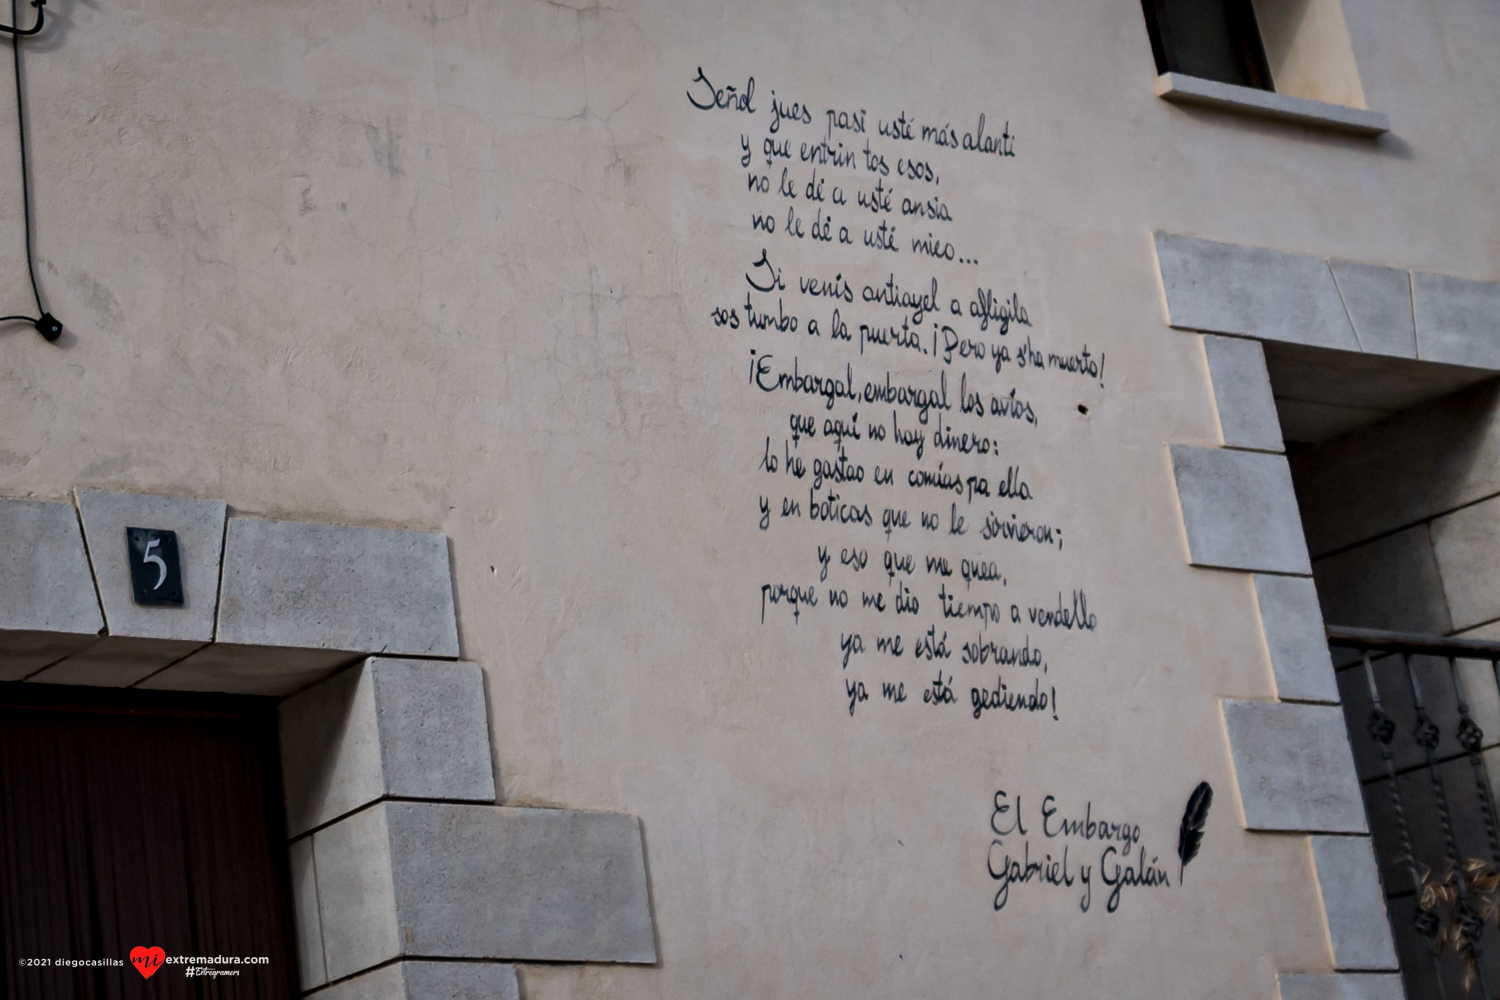 Señol jues pasi usté más alanti
y que entrin tos esos,
no le dé a usté ansia
no le dé a usté mieo...
Si venís antiayel a afligila
sos tumbo a la puerta. ¡Pero ya s'ha muerto!
¡Embargal, embargal los avíos,
que aquí no hay dinero:
lo he gastao en comías pa ella
y en boticas que no le sirvieron;
y eso que me quea,
porque no me dio tiempo a vendello
ya me está sobrando,
ya me está gediendo!
El Embargo
Gabriel y Galán
5
©2021 diegocasillas
mi extremadura.com
#Extregramers